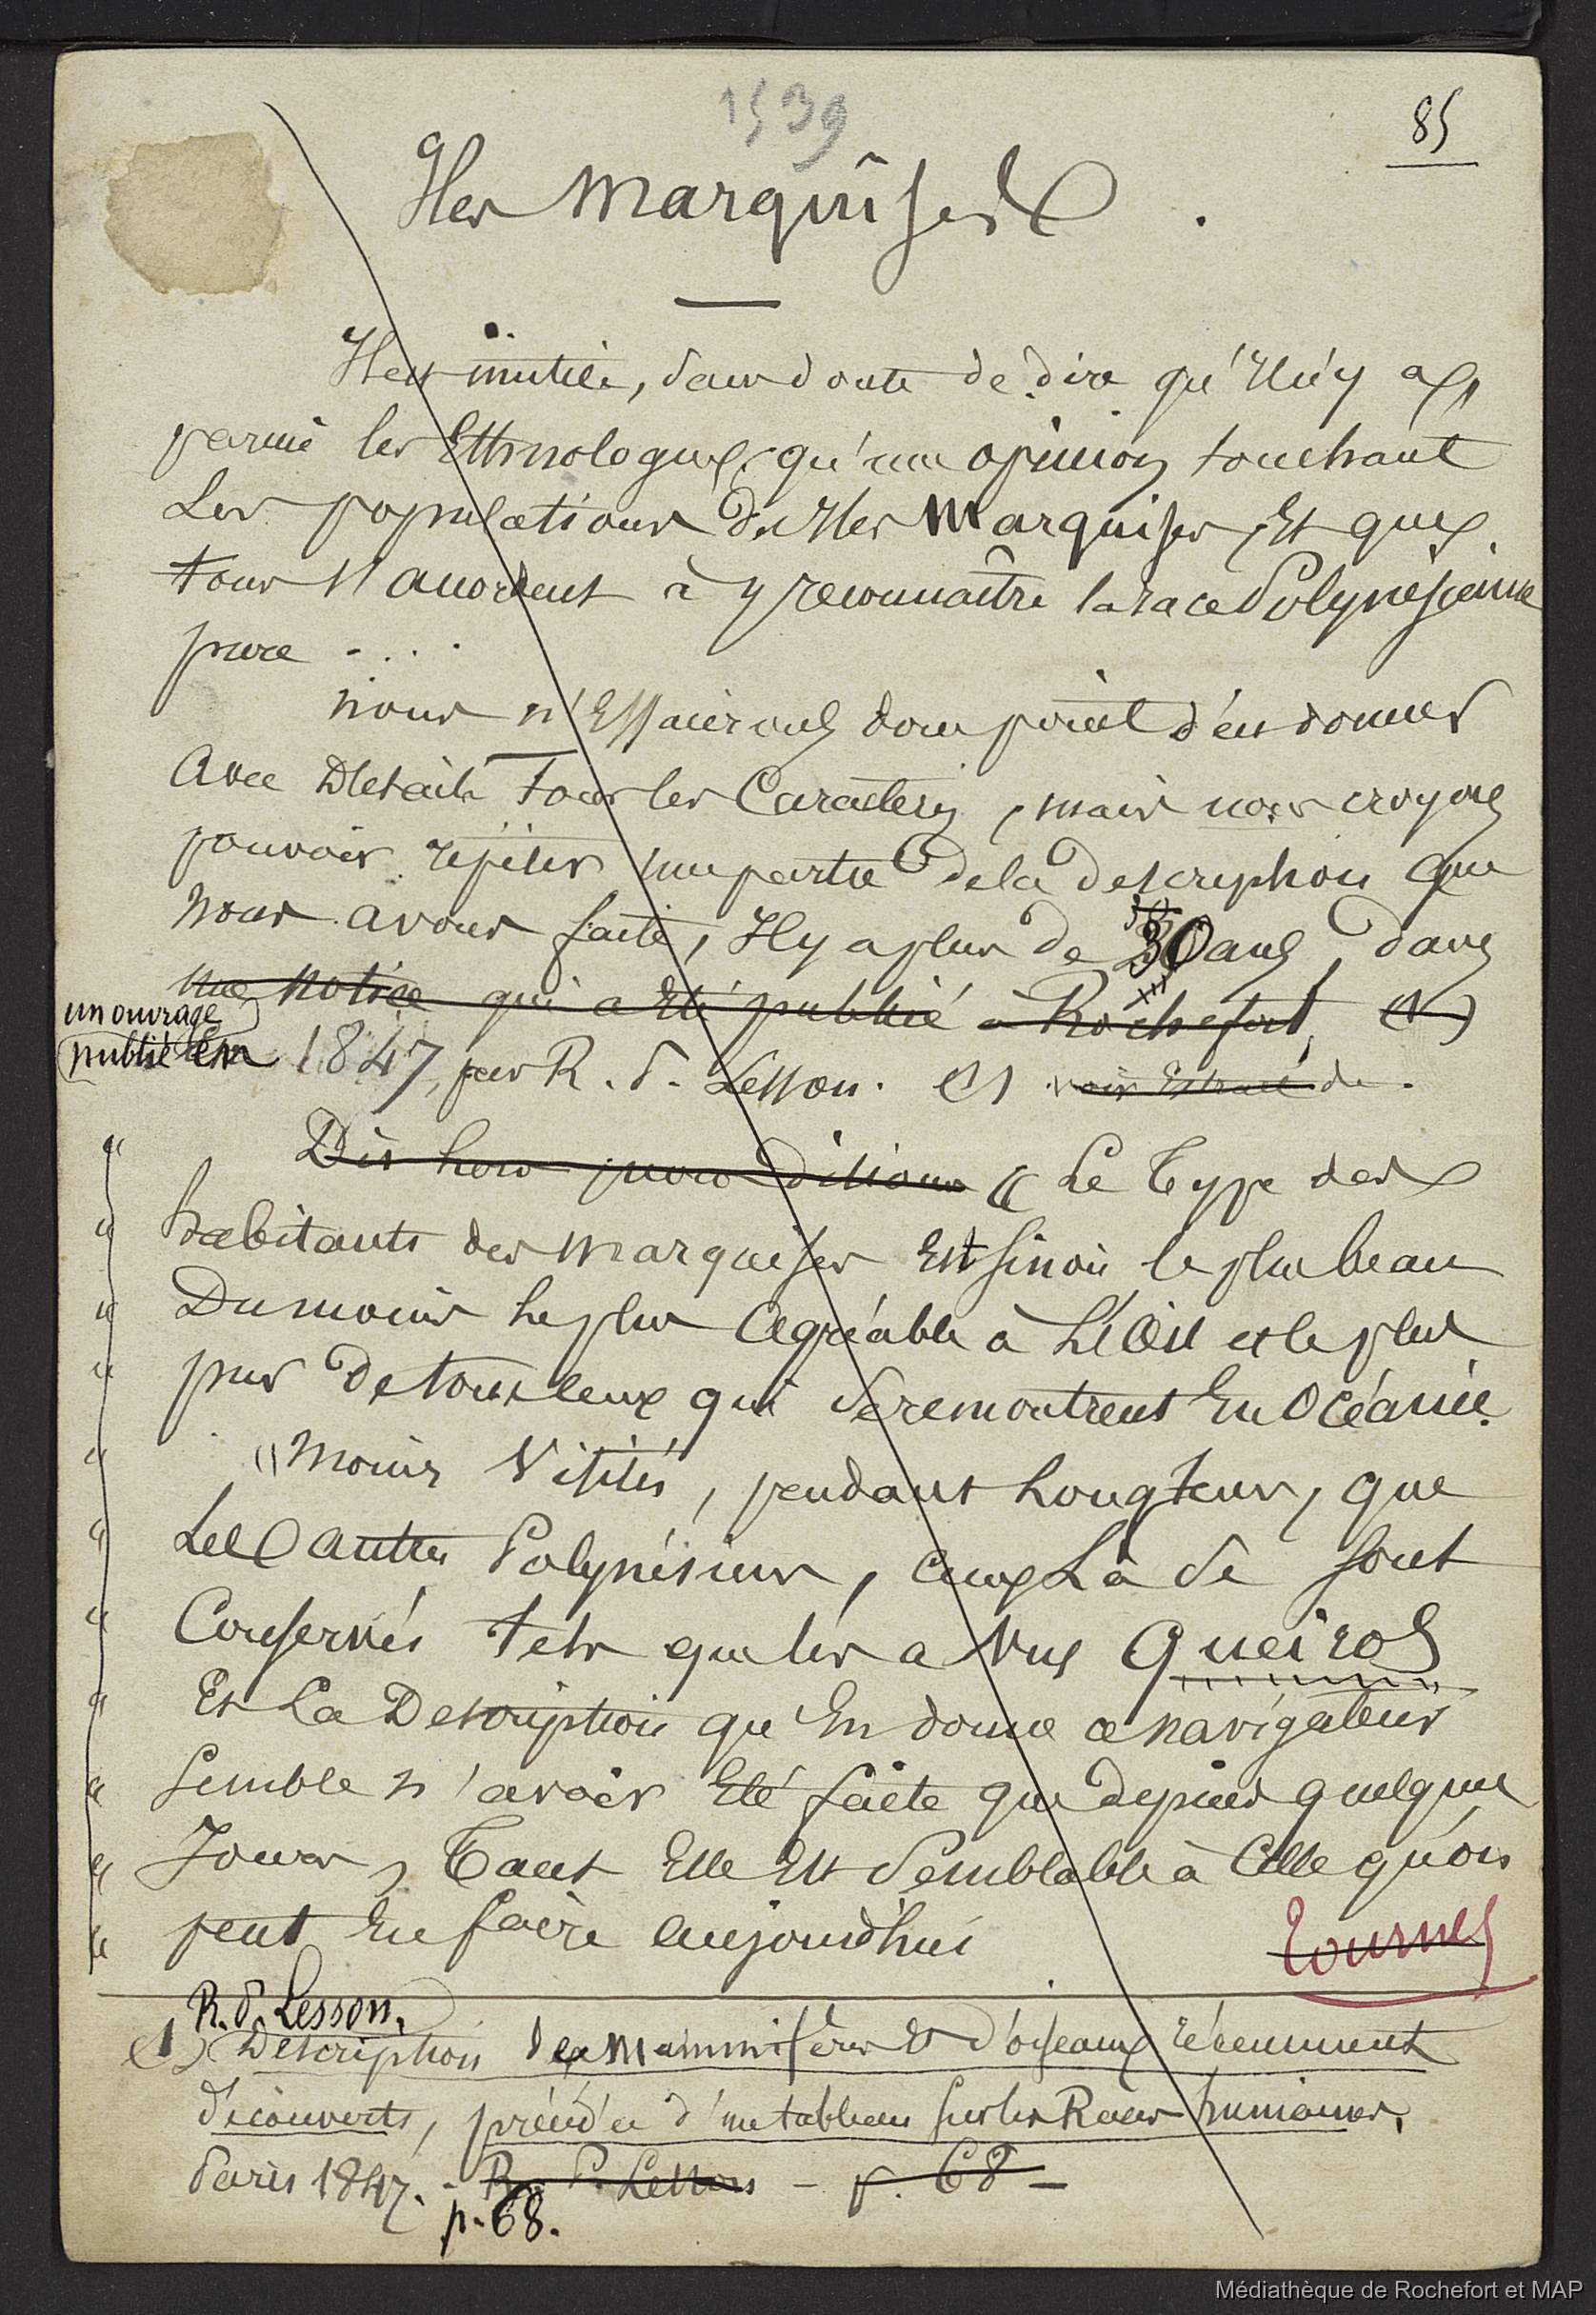 1539
85
Iles Marquises.
Il est inutile, sans doute de dire qu'Il n'y a,
parmi les Ethnologues, qu'une opinion touchant
Les populations des Iles Marquises, Et que
tous s'accordent à y reconnaître la race Polynésienne
pure - . . .
nous n'Essaierons donc point d'en donner
Avec Détails tous les Caractères, mais nous croyons
pouvoir répéter une partie de la description que
Nous avons faite, Il y a plus de 30 ans, dans
une notice qui a Eté publié à Rochefort, (1)
un ouvrage
publié en 1847, par R. P. Lesson. (1) voir Extrait de.
Dès lors nous disions « Le Type des
« habitants des marquises Est sinon le plus beau
« Du moins Le plus Agréable à L'Œil et le plus
« pur De tous ceux qui se remontrent En Océanie.
« "Moins Visités, pendant Longtems, que
« Les autres Polynésiens, ceux Là se sont
« Conservés tels que les a vus Queiros
« Et La Description qu'En donne ce navigateur
« Semble n'avoir Eté faite que depuis quelques
« Jours, Tant Elle Est Semblable à Celle qu'on
« peut En faire aujourd'hui
tournez
R. P. Lesson.
(1) Description de Mammifères Et d'oiseaux récemment
découverts, précédée d'un tableau sur les Races humaines,
Paris 1847. - R. P. Lesson - p. 68 -
p. 68.
Médiathèque de Rochefort et MAP